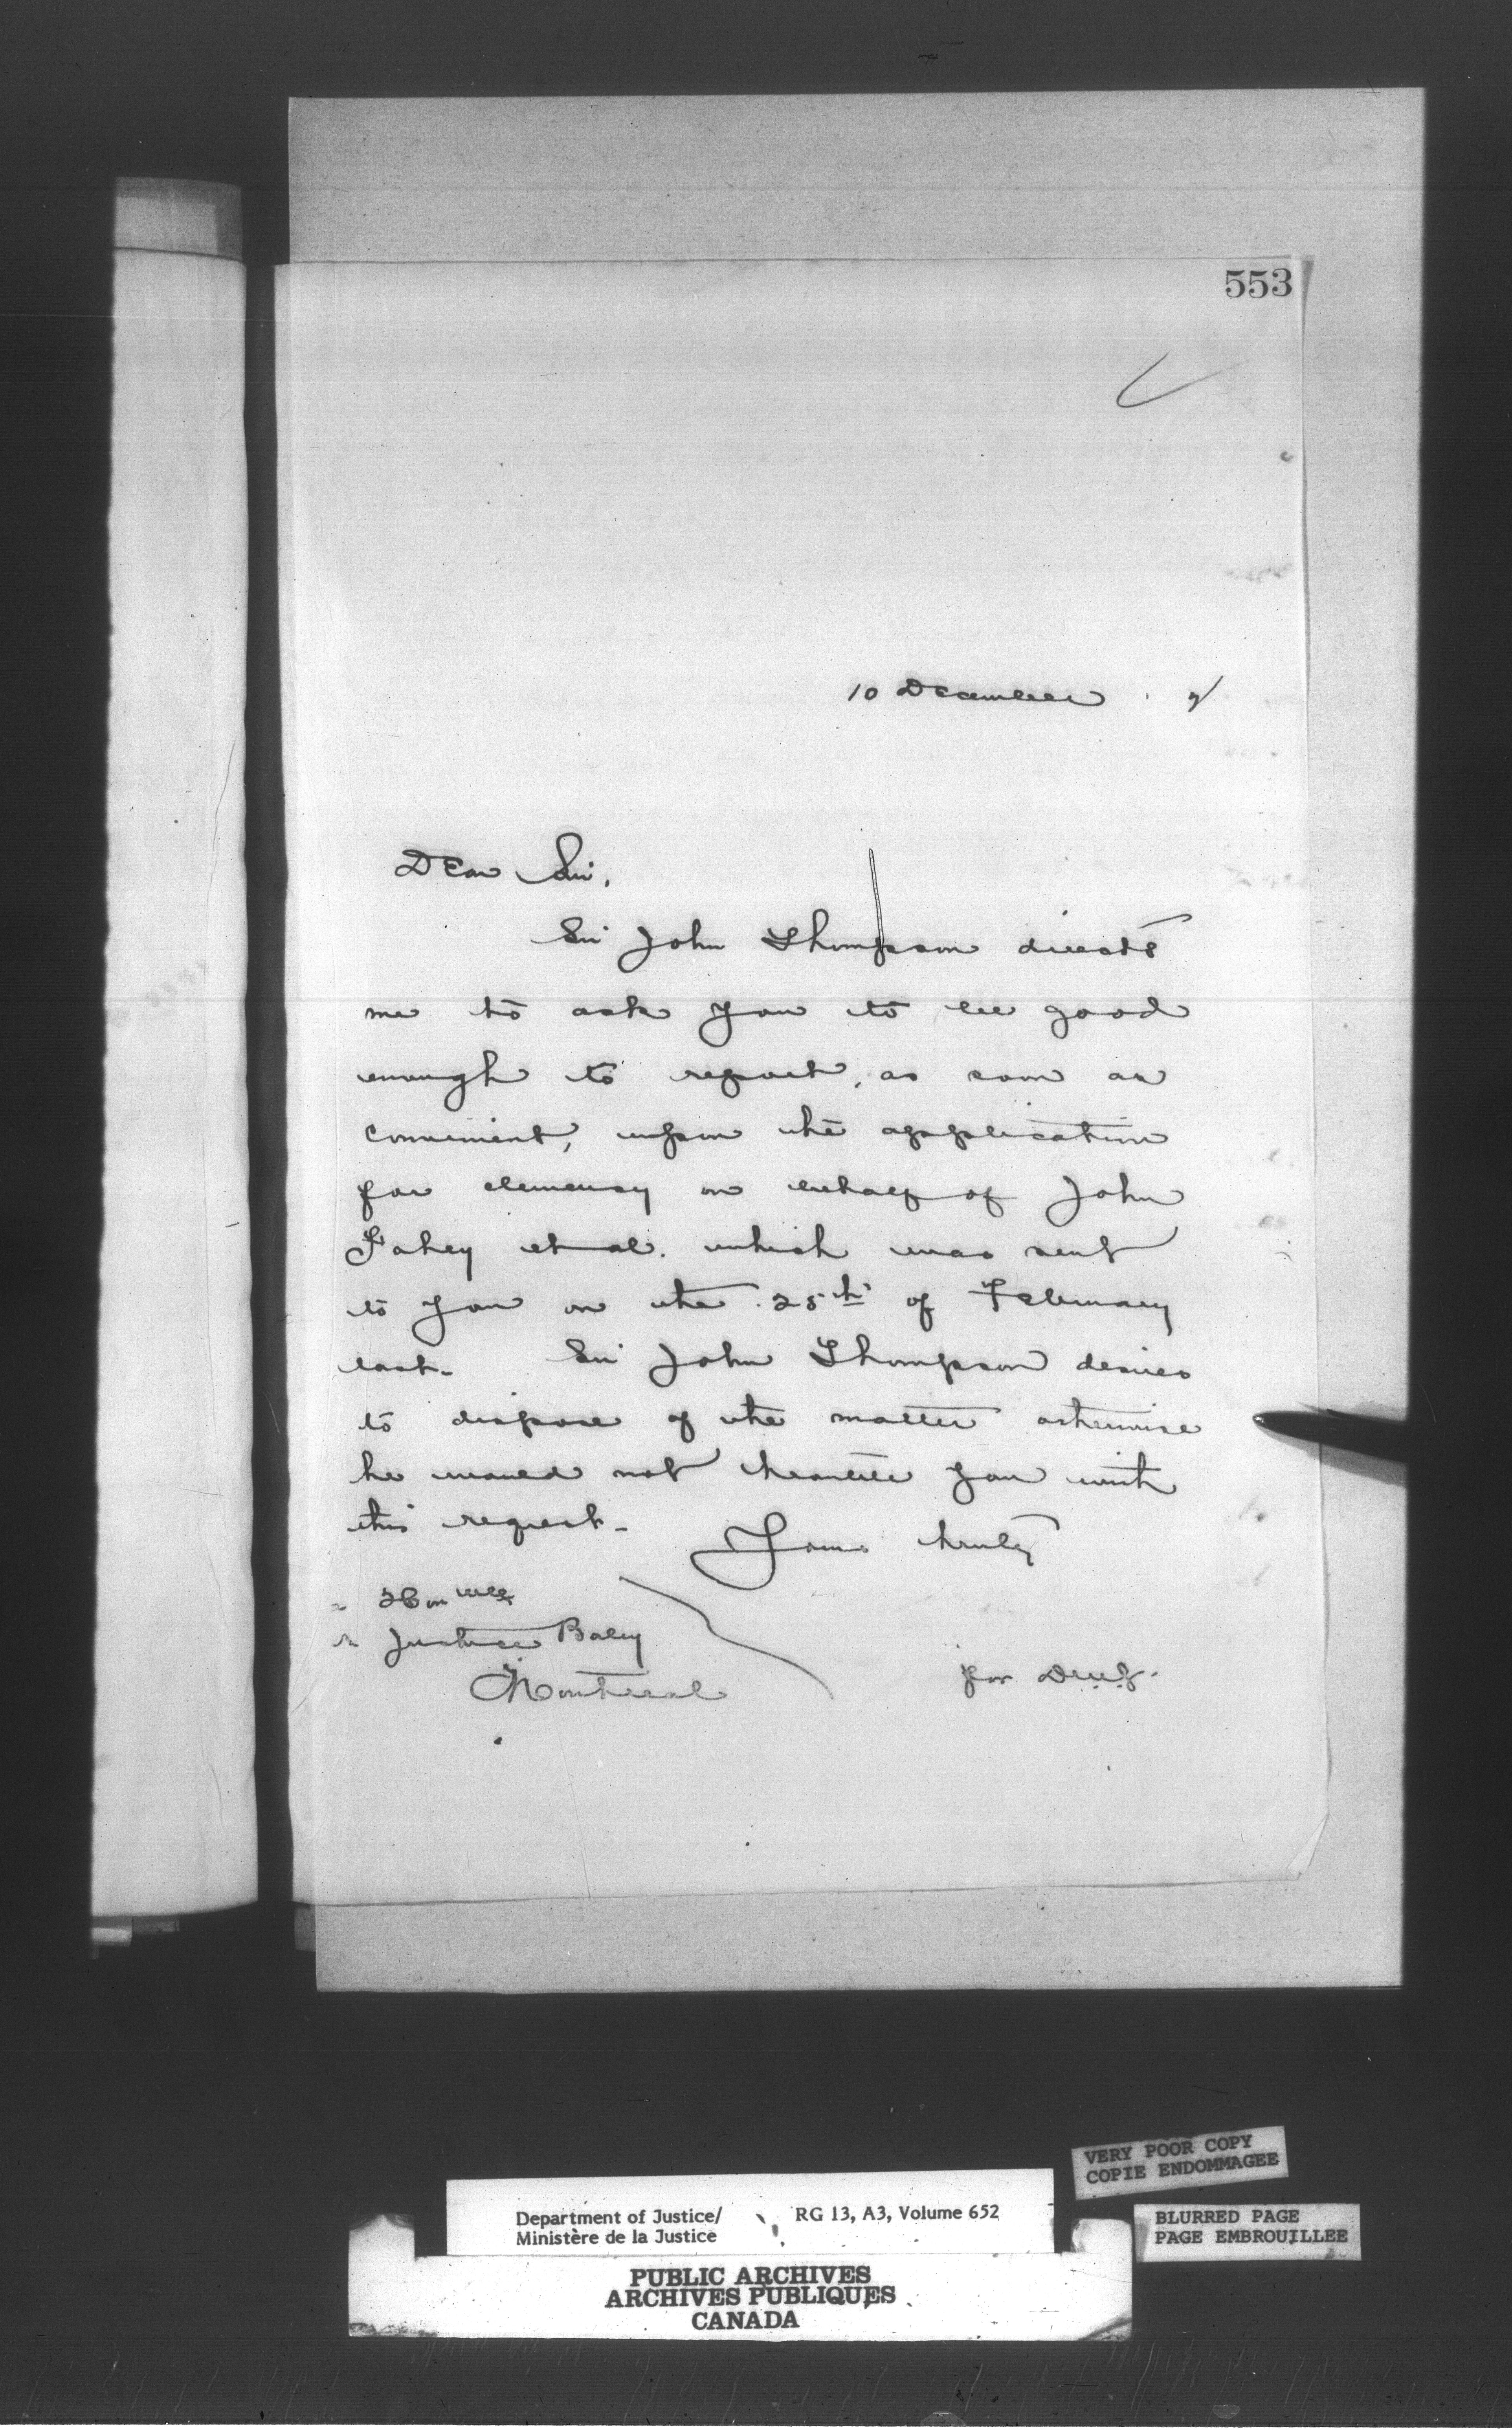 553
10 December
Dear Sir,
Sir John Thompson directs
me to ask you to be good
enough to report, as soon as
convenient, upon the application
for clemency on behalf of John
Fahey et al. which was sent
to you on the 25th of February
last. Sir John Thompson desires
to dispose of the matter otherwise
he would not trouble you with
this request.
Yours truly
Honble
Justice Baby
Montreal
for
VERY POOR COPY
COPIE ENDOMMAGEE
Department of Justice/ RG 13, A3, Volume 652
Ministère de la Justice
BLURRED PAGE
PAGE EMBROUILLEE
PUBLIC ARCHIVES
ARCHIVES PUBLIQUES
CANADA